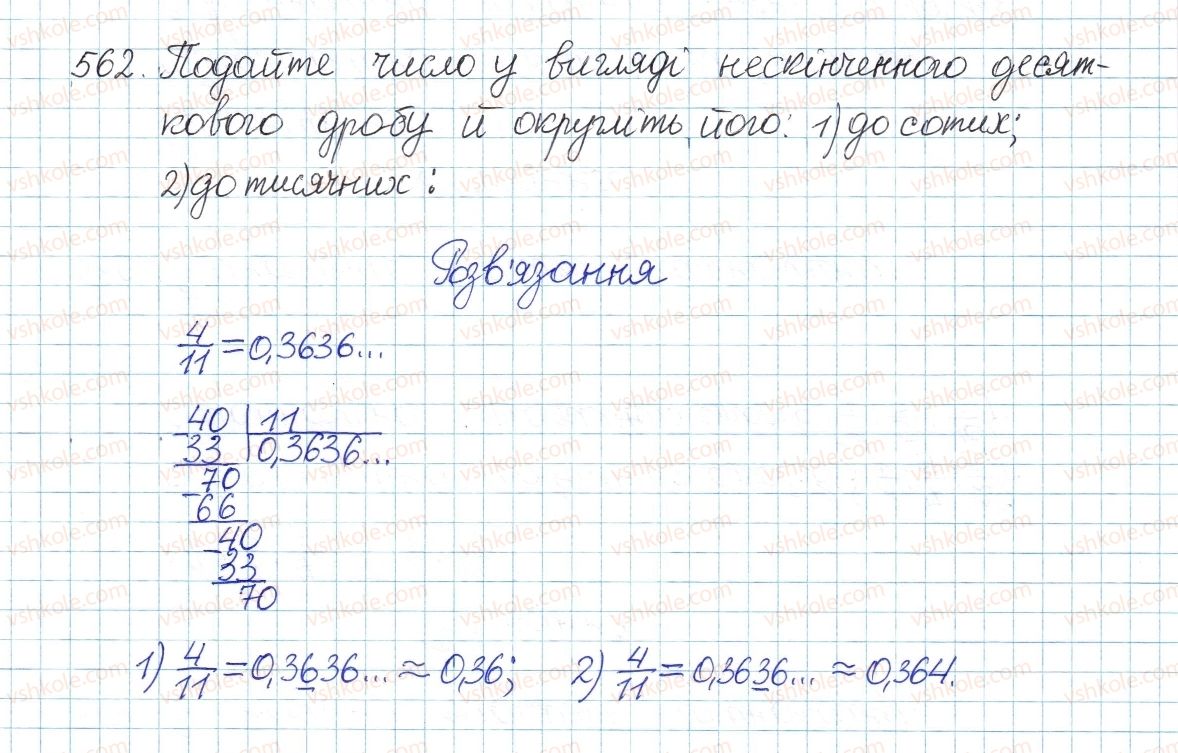 562. Подайте число у вигляді нескінченного десят-
кового дробу й округліть його: 1) до сотих;
2) до тисячних:
Розв'язання
4/11 = 0,3636...
40 | 11
33 | 0,3636...
70
66
40
33
70
1) 4/11 = 0,3636... ≈ 0,36; 2) 4/11 = 0,3636... ≈ 0,364.